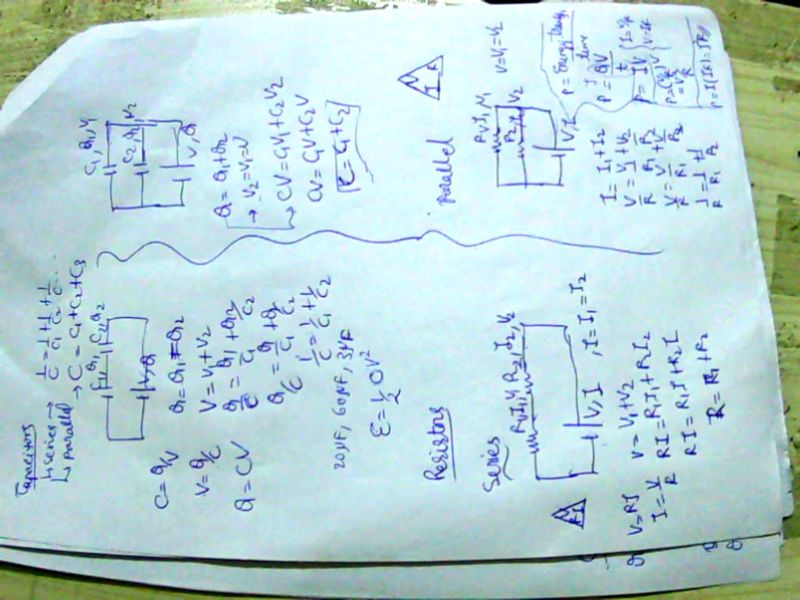 Capacitors
↳ series → 1/C = 1/C1 + 1/C2 + 1/C...
↳ parallel → C = C1 + C2 + C3
C = Q/V
V = Q/C
Q = CV
V = V1 + V2
Q/C = Q1/C1 + Q2/C2
Q/C = Q/C1 + Q/C2
1/C = 1/C1 + 1/C2
20μF, 60μF, 3μF
E = 1/2 QV²
C1, Q1, V1
C2 Q2 V2
V, Q
Q = Q1 + Q2
→ V2 = V1 = V
→ CV = C1V1 + C2V2
CV = C1V + C2V
C = C1 + C2
Resistors
Series
V, I
, I = I1 = I2
V = RI
I = V/R
V = V1 + V2
RI = R1I1 + R2I2
RI = R1I + R2I
R = R1 + R2
parallel
V I R
V = V1 = V2
V, I
I = I1 + I2
V/R = V1/R1 + V2/R2
V/R = V/R1 + V/R2
1/R = 1/R1 + 1/R2
P = IV
P = I(IR) = I²R